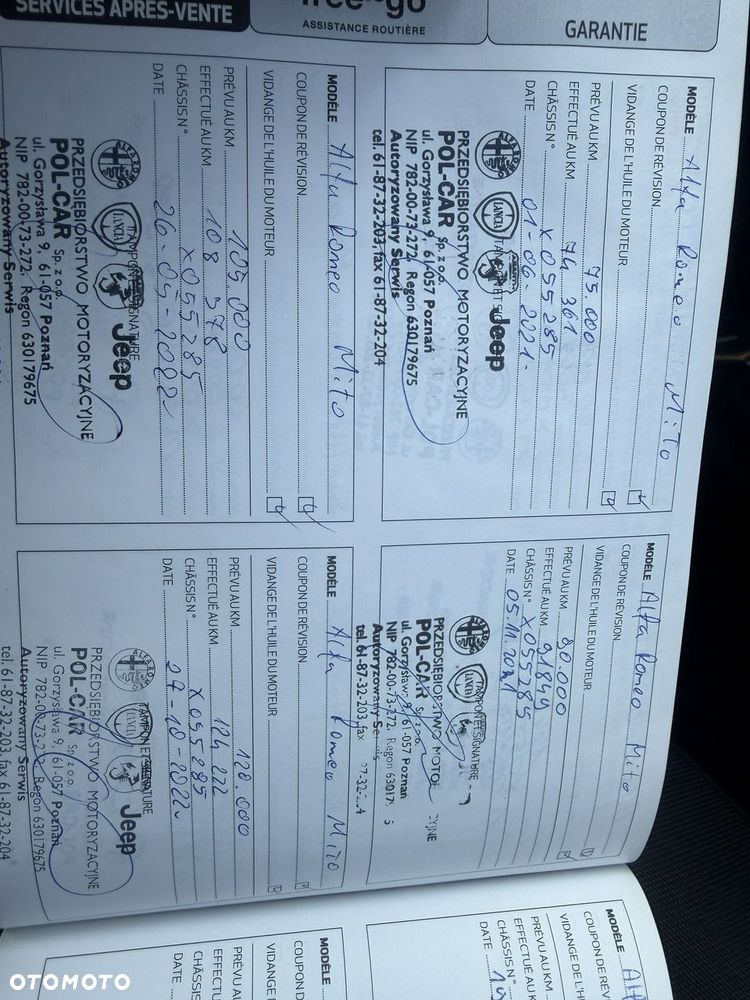 SERVICES APRÈS-VENTE
ASSISTANCE ROUTIÈRE
GARANTIE
MODÈLE Alfa Romeo Mito
COUPON DE RÉVISION
VIDANGE DE L'HUILE DU MOTEUR
PRÉVU AU KM 75.000
EFFECTUÉ AU KM 74 361
CHÂSSIS N° X055285
DATE 01-06-2021-
LANCIA
Jeep
PRZEDSIĘBIORSTWO MOTORYZACYJNE
POL-CAR Sp. z o.o.
ul. Gorzysława 9, 61-057 Poznań
NIP 782-00-73-272, Regon 630179675
Autoryzowany Serwis
tel. 61-87-32-203, fax 61-87-32-204
MODÈLE Alfa Romeo Mito
COUPON DE RÉVISION
VIDANGE DE L'HUILE DU MOTEUR
PRÉVU AU KM 90.000
EFFECTUÉ AU KM 91844
CHÂSSIS N° X055285
DATE 05.11.2021
TAMPON ET SIGNATURE
LANCIA
POL-CAR Sp. z o.o.
ul. Gorzysława 9, 61-057 Poznań
NIP 782-00-73-272, Regon 63017 5
tel. 61-87-32-203, fax
MODÈLE Alfa Romeo Mito
COUPON DE RÉVISION
VIDANGE DE L'HUILE DU MOTEUR
PRÉVU AU KM 105.000
EFFECTUÉ AU KM 108 378
CHÂSSIS N° X055285
DATE 26-05-2022-
LANCIA
Jeep
PRZEDSIĘBIORSTWO MOTORYZACYJNE
POL-CAR Sp. z o.o.
ul. Gorzysława 9, 61-057 Poznań
NIP 782-00-73-272, Regon 630179675
Autoryzowany Serwis
MODÈLE Alfa Romeo Mito
COUPON DE RÉVISION
VIDANGE DE L'HUILE DU MOTEUR
PRÉVU AU KM 120.000
EFFECTUÉ AU KM 124 222
CHÂSSIS N° X055285
DATE 27-10-2022-
TAMPON ET SIGNATURE
LANCIA
Jeep
PRZEDSIĘBIORSTWO MOTORYZACYJNE
POL-CAR Sp. z o.o.
ul. Gorzysława 9, 61-057 Poznań
NIP 782-00-73-272, Regon 630179675
Autoryzowany Serwis
tel. 61-87-32-203, fax 61-87-32-204
MODÈLE
COUPON DE
VIDANGE DE L'H
PRÉVU AU KM
EFFECTUÉ AU K
CHÂSSIS N°
DATE
MODÈLE
COUPON D
VIDANGE DE
PRÉVU AU KM
EFFECTUÉ AU
CHÂSSIS N°
DATE
OTOMOTO